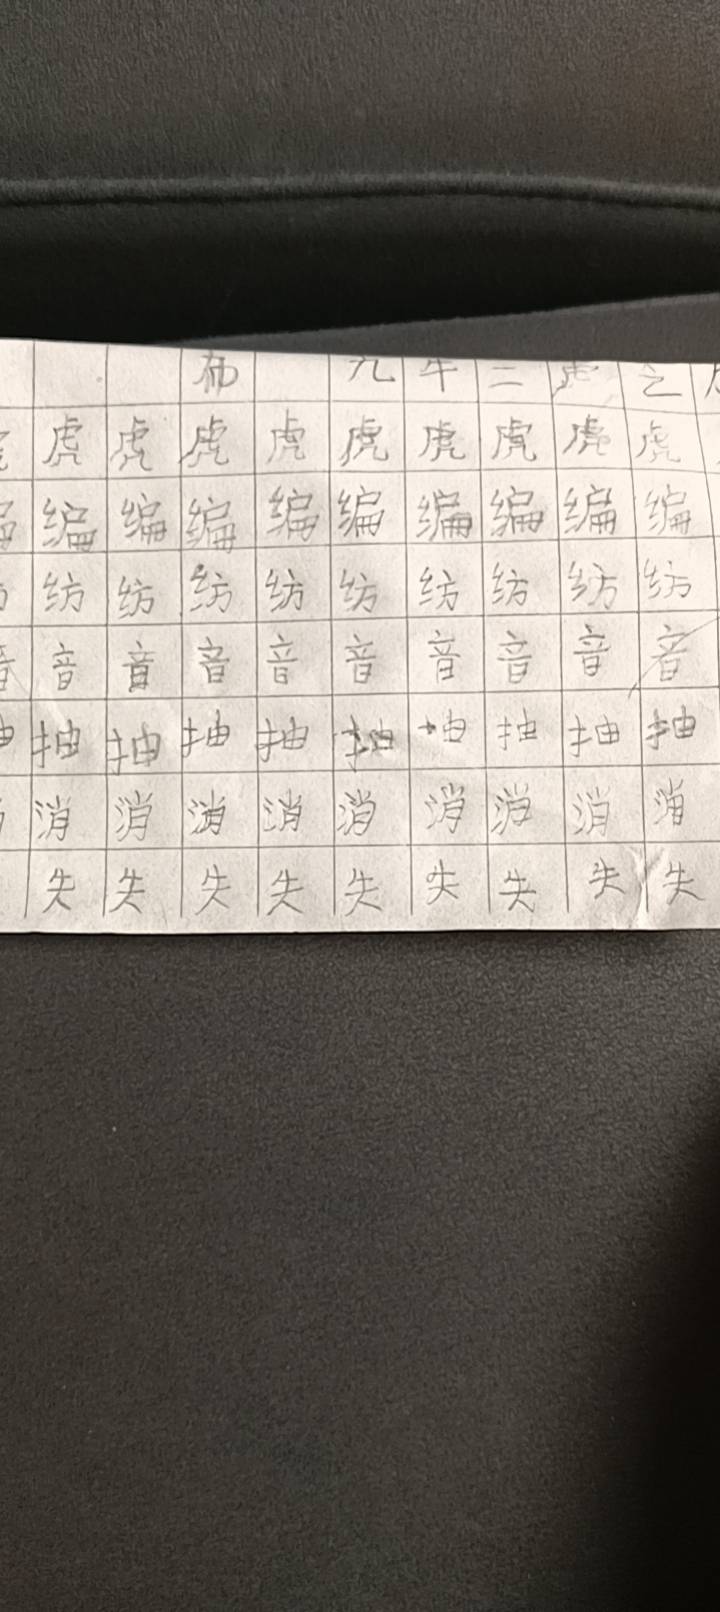 布 九牛二虎之
虎虎虎虎虎虎虎虎虎
编编编编编编编编编
纺纺纺纺纺纺纺纺纺
音音音音音音音音音
抽抽抽抽抽抽抽抽抽
消消消消消消消消消
失失失失失失失失失